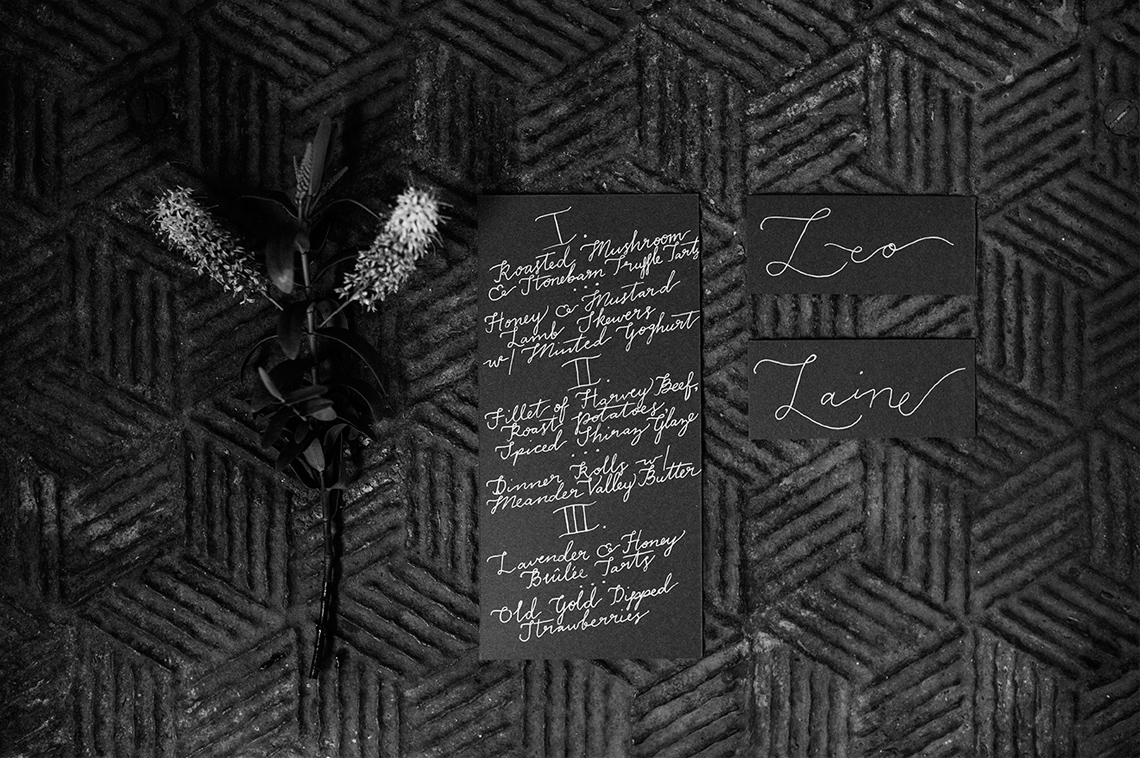 I.
Roasted Mushroom
& Stonebarn Truffle Tarts
...
Honey & Mustard
Lamb Skewers
w/ Minted Yoghurt
II.
Fillet of Harvey Beef,
Roast Potatoes,
Spiced Shiraz Glaze
...
Dinner Rolls w/
Meander Valley Butter
III.
Lavender & Honey
Brûlée Tarts
...
Old Gold Dipped
Strawberries
Leo
Laine